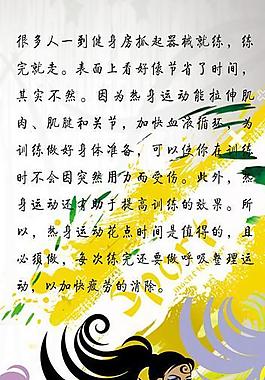 很多人一到健身房抓起器械就练，练
完就走。表面上看好像节省了时间，
其实不然。因为热身运动能拉伸肌
肉、肌腱和关节，加快血液循环，为
训练做好身体准备，可以使你在训练
时不会因突然用力而受伤。此外，热
身运动还有助于提高训练的效果。所
以，热身运动花点时间是值得的，且
必须做，每次练完还要做呼吸整理运
动，以加快疲劳的消除。
SPORT